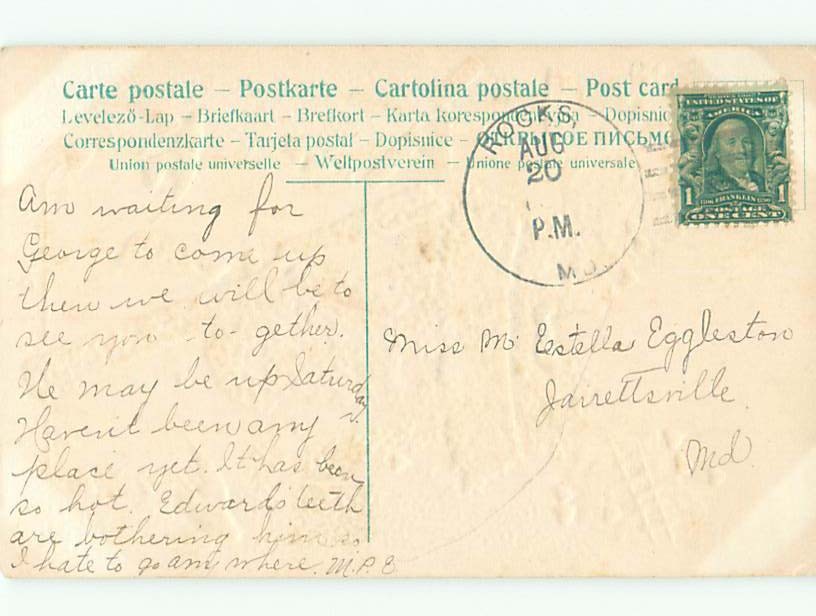 Carte postale – Postkarte – Cartolina postale – Post card
Levelező-Lap – Briefkaart – Brefkort – Karta korespondencyjna – Dopisnic
Correspondenzkarte – Tarjeta postal – Dopisnice – ОТКРЫТОЕ ПИСЬМО
Union postale universelle – Weltpostverein – Unione postale universale
ROCKS,
AUG
20
P.M.
MD.
UNITED STATES OF
AMERICA
1 1
1706 FRANKLIN 1790
POSTAGE
ONE CENT
Am waiting for
George to come up
then we will be to
see you to-gether.
He may be up Saturday
Havent been any
place yet. It has been
so hot. Edwards teeth
are bothering him so
I hate to go any where. M.P.E
Miss M. Estella Eggleston
Jarrettsville
Md.